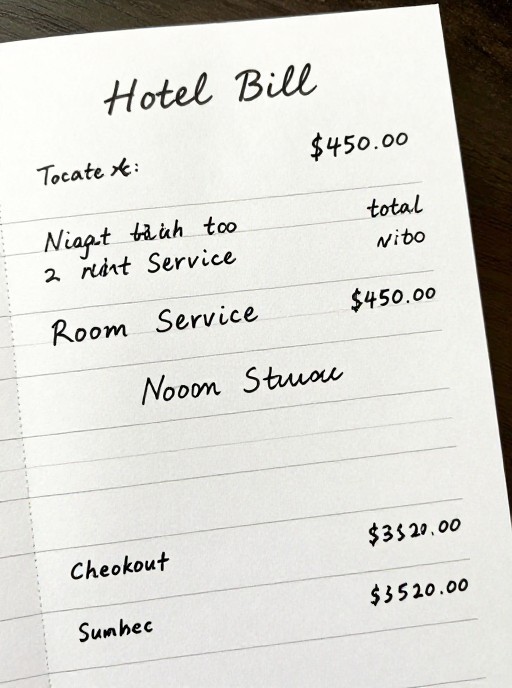 Hotel Bill
$450.00
Tocate
too total
2 Service Nito
Room Service $450.00
Nooon
Cheokout $3520.00
Sumhec $3520.00